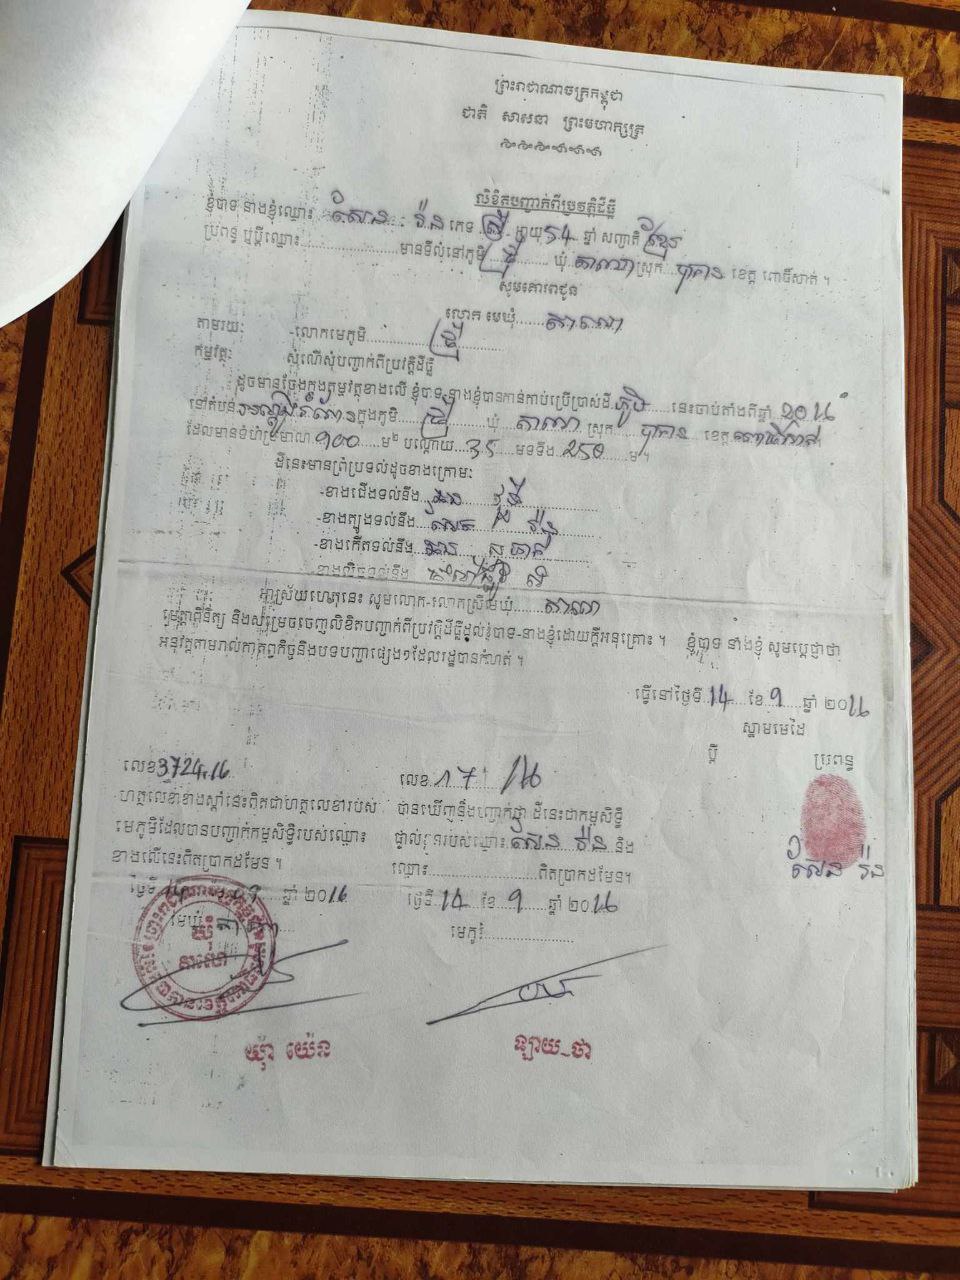 ព្រះរាជាណាចក្រកម្ពុជា
ជាតិ សាសនា ព្រះមហាក្សត្រ
លិខិតបញ្ជាក់ពីប្រវត្តិដីធ្លី
ខ្ញុំបាទ នាងខ្ញុំឈ្មោះ សែន រ៉ន ភេទ ស្រី អាយុ 54 ឆ្នាំ សញ្ជាតិ ខ្មែរ
ប្រពន្ធ ឬប្ដីឈ្មោះ.....................មានទីលំនៅភូមិ ឃុំ តាលោ ស្រុក បាកាន ខេត្ត ពោធិ៍សាត់ ។
សូមគោរពជូន
លោក មេឃុំ តាលោ
តាមរយៈ -លោកមេភូមិ
កម្មវត្ថុៈ សុំណើសុំបញ្ជាក់ពីប្រវត្តិដីធ្លី
ដូចមានចែងក្នុងកម្មវត្ថុខាងលើ ខ្ញុំបាទ នាងខ្ញុំបានកាន់កាប់ប្រើប្រាស់ដី ភូមិ នេះចាប់តាំងពីឆ្នាំ
នៅតំបន់ ក្នុងភូមិ ឃុំ តាលោ ស្រុក បាកាន ខេត្ត ពោធិ៍សាត់
ដែលមានទំហំប្រមាណ ១០០ ម² បណ្ដោយ 35 មទទឹង 250 ម។
ដីនេះមានព្រំប្រទល់ដូចខាងក្រោមៈ
-ខាងជើងទល់នឹង
-ខាងត្បូងទល់នឹង សែន រ៉ន
-ខាងកើតទល់នឹង
-ខាងលិចទល់នឹង
អាស្រ័យហេតុនេះ សូមលោក-លោកស្រីមេឃុំ តាលោ
មេត្តាពិនិត្យ និងសម្រេចចេញលិខិតបញ្ជាក់ពីប្រវត្តិដីធ្លីដល់ខ្ញុំបាទ-នាងខ្ញុំដោយក្ដីអនុគ្រោះ ។ ខ្ញុំបាទ នាងខ្ញុំ សូមប្ដេជ្ញាថា
អនុវត្តតាមរាល់កាតព្វកិច្ចនិងបទបញ្ជាផ្សេងៗដែលរដ្ឋបានកំណត់ ។
ធ្វើនៅថ្ងៃទី 14 ខែ 9 ឆ្នាំ ២០16
ស្នាមមេដៃ
ប្ដី ប្រពន្ធ
សែន រ៉ន
លេខ 3724.16
ហត្ថលេខាខាងស្ដាំនេះពិតជាហត្ថលេខារបស់
មេភូមិដែលបានបញ្ជាក់កម្មសិទ្ធិរបស់ឈ្មោះ
ខាងលើនេះពិតប្រាកដមែន ។
ថ្ងៃទី ឆ្នាំ ២០16
មេឃុំ
ឃុំ
តាលោ
យ៉ា យ៉េន
លេខ 16
បានឃើញនិងបញ្ជាក់ថា ដីនេះជាកម្មសិទ្ធិ
ផ្ទាល់ខ្លួនរបស់ឈ្មោះ សែន រ៉ន និង
ឈ្មោះ.........................ពិតប្រាកដមែន។
ថ្ងៃទី 14 ខែ 9 ឆ្នាំ ២០16
មេភូមិ
ឡាយ-ថា